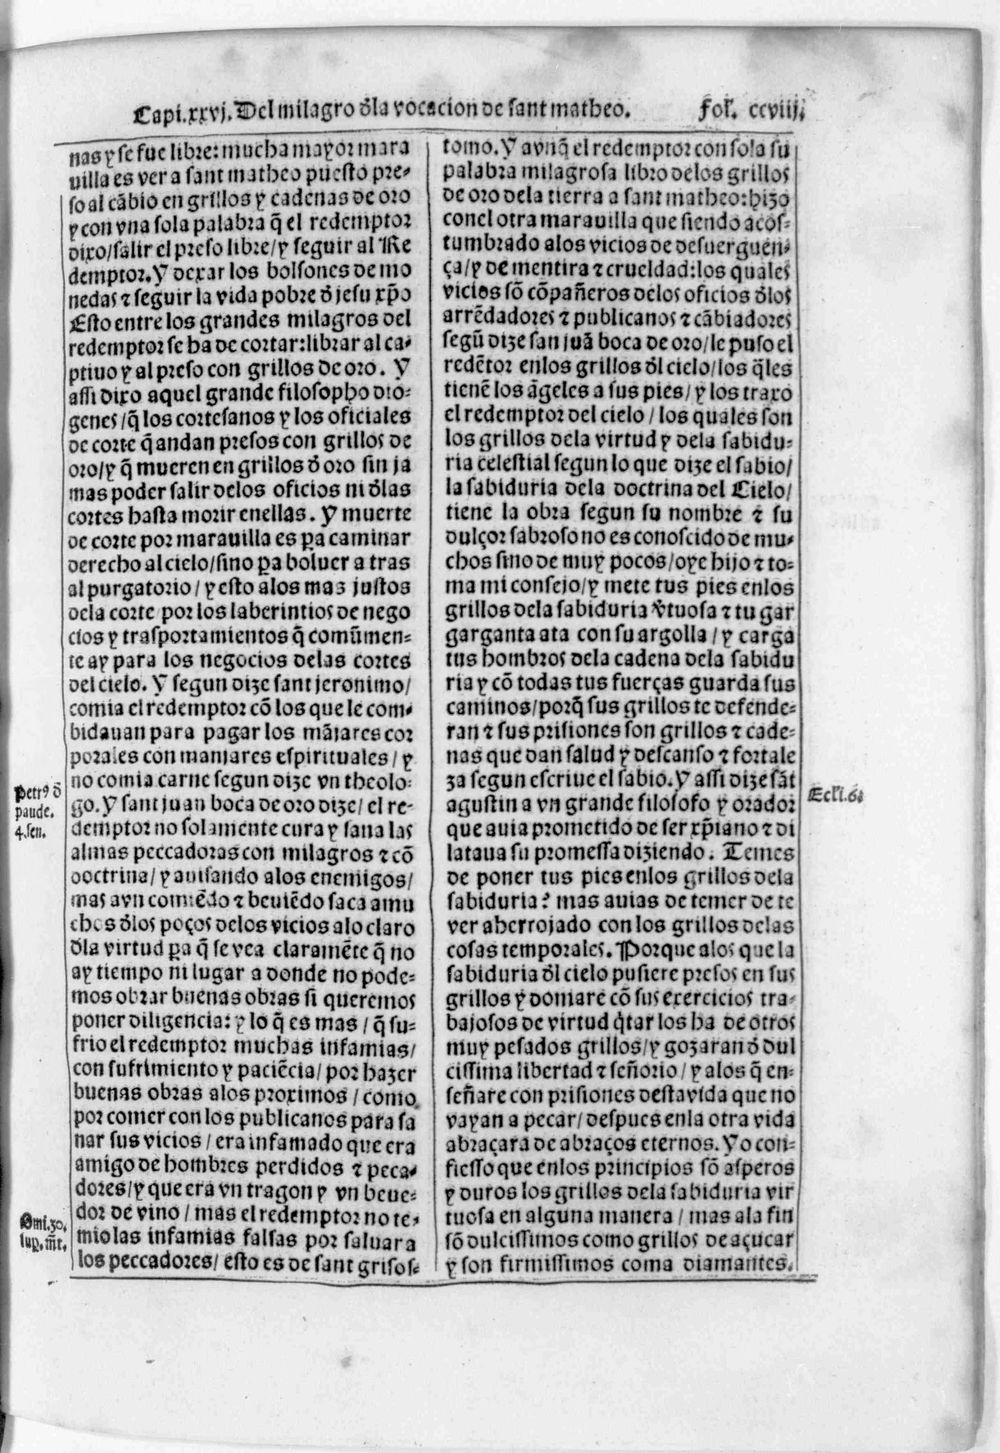 Capi.xxvj. Del milagro d̃la vocacion de sant matheo. Fol. ccviij.
nas y se fue libre: mucha mayor mara
uilla es ver a sant matheo puesto pre-
so al cãbio en grillos y cadenas de oro
y con vna sola palabra q̃ el redemptor
dixo/salir el preso libre/y seguir al Re
demptor. Y dexar los bolsones de mo
nedas ⁊ seguir la vida pobre d̃ jesu xp̃o
Esto entre los grandes milagros del
redemptor se ha de cortar: librar al ca-
ptiuo y al preso con grillos de oro. Y
assi dixo aquel grande filosopho dio-
genes/q̃ los cortesanos y los oficiales
de corte q̃ andan presos con grillos de
oro/y q̃ mueren en grillos d̃ oro sin ja
mas poder salir delos oficios ni d̃las
cortes hasta morir enellas. Y muerte
de corte por marauilla es p̃a caminar
derecho al cielo/sino p̃a boluer a tras
al purgatorio/y esto alos mas justos
dela corte por los laberintios de nego
cios y trasportamientos q̃ comũmen-
te ay para los negocios delas cortes
del cielo. Y segun dize sant jeronimo/
comia el redemptor cõ los que le com-
bidauan para pagar los mãjares cor
porales con manjares espirituales/y
no comia carne segun dize vn theolo-
go. Y sant juan boca de oro dize/el re-
demptor no solamente cura y sana las
almas peccadoras con milagros ⁊ cõ
doctrina/y auisando alos enemigos/
mas avn comiẽdo ⁊ beuiẽdo saca a mu
chos d̃los poços delos vicios alo claro
d̃la virtud p̃a q̃ se vea claramẽte q̃ no
ay tiempo ni lugar a donde no pode-
mos obrar buenas obras si queremos
poner diligencia: y lo q̃ es mas/q̃ su-
frio el redemptor muchas infamias/
con sufrimiento y paciẽcia/por hazer
buenas obras alos proximos/como
por comer con los publicanos para sa
nar sus vicios/era infamado que era
amigo de hombres perdidos ⁊ peca-
dores/y que era vn tragon y vn beue-
dor de vino/mas el redemptor no te-
mio las infamias falsas por saluar a
los peccadores/esto es de sant grisos-
Petrꝰ d̃
paude.
4.sen.
Omi.30.
sup̱.m̃t.
tomo. Y avnq̃ el redemptor con sola su
palabra milagrosa libro delos grillos
de oro dela tierra a sant matheo: hizo
conel otra marauilla que siendo acos-
tumbrado alos vicios de desuerguen-
ça/y de mentira ⁊ crueldad: los quales
vicios sõ cõpañeros delos oficios d̃los
arrẽdadores ⁊ publicanos ⁊ cãbiadores
segũ dize san juã boca de oro/le puso el
redẽtor enlos grillos d̃l cielo/los q̃les
tienẽ los ãgeles a sus pies/y los traxo
el redemptor del cielo/los quales son
los grillos dela virtud y dela sabidu-
ria celestial segun lo que dize el sabio/
la sabiduria dela doctrina del Cielo/
tiene la obra segun su nombre ⁊ su
dulçor sabroso no es conoscido de mu-
chos sino de muy pocos/oye hijo ⁊ to-
ma mi consejo/y mete tus pies enlos
grillos dela sabiduria v̓tuosa ⁊ tu gar
garganta ata con su argolla/y carga
tus hombros dela cadena dela sabidu
ria y cõ todas tus fuerças guarda sus
caminos/porq̃ sus grillos te defende-
ran ⁊ sus prisiones son grillos ⁊ cade-
nas que dan salud y descanso ⁊ fortale
za segun escriue el sabio. Y assi dize sãt
agustin a vn grande filosofo y orador
que auia prometido de ser xp̃iano ⁊ di
lataua su promessa diziendo. Temes
de poner tus pies enlos grillos dela
sabiduria? mas auias de temer de te
ver aherrojado con los grillos delas
cosas temporales. Porque alos que la
sabiduria d̃l cielo pusiere presos en sus
grillos y domare cõ sus exercicios tra-
bajosos de virtud q̃tar los ha de otros
muy pesados grillos/y gozaran d̃ dul
cissima libertad ⁊ señorio/y alos q̃ en-
señare con prisiones desta vida que no
vayan a pecar/despues enla otra vida
abraçara de abraços eternos. Yo con-
fiesso que enlos principios sõ asperos
y duros los grillos dela sabiduria vir
tuosa en alguna manera/mas ala fin
sõ dulcissimos como grillos de açucar
y son firmissimos coma diamantes.
Ecli.6.